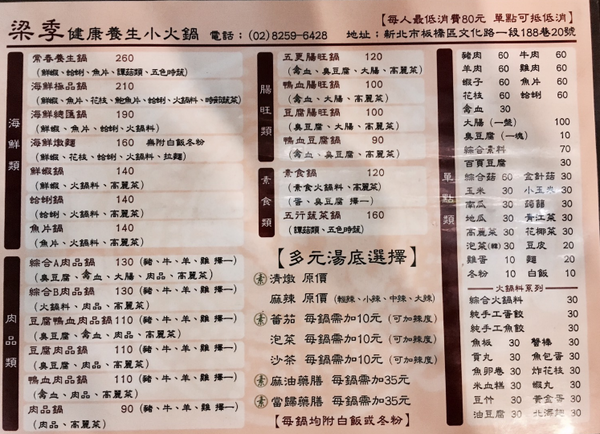 梁季健康養生小火鍋 電話：(02)8259-6428
【每人最低消費80元 單點可抵低消】
地址：新北市板橋區文化路一段188巷20號
海鮮類
常春養生鍋 260
(鮮蝦、蛤蜊、魚片、蹄菇類、五色時蔬)
海鮮極品鍋 210
(鮮蝦、魚片、花枝、鮑魚片、蛤蜊、火鍋料、時前蔬菜)
海鮮總匯鍋 190
(鮮蝦、魚片、蛤蜊、火鍋料)
海鮮燉麵 160 無附白飯冬粉
(鮮蝦、花枝、蛤蜊、火鍋料、拉麵)
鮮蝦鍋 140
(鮮蝦、火鍋料、高麗菜)
蛤蜊鍋 140
(蛤蜊、火鍋料、高麗菜)
魚片鍋 140
(魚片、火鍋料、高麗菜)
肉品類
綜合A肉品鍋 130 (豬、牛、羊、雞 擇一)
(臭豆腐、禽血、大腸、肉品、高麗菜)
綜合B肉品鍋 130 (豬、牛、羊、雞 擇一)
(火鍋料、肉品、高麗菜)
豆腐鴨血肉品鍋 110 (豬、牛、羊、雞 擇一)
(臭豆腐、禽血、肉品、高麗菜)
豆腐肉品鍋 110 (豬、牛、羊、雞 擇一)
(臭豆腐、肉品、高麗菜)
鴨血肉品鍋 110 (豬、牛、羊、雞 擇一)
(禽血、肉品、高麗菜)
肉品鍋 90 (豬、牛、羊、雞 擇一)
(肉品、高麗菜)
腸旺類
五更腸旺鍋 120
(禽血、臭豆腐、大腸、高麗菜)
鴨血腸旺鍋 100
(禽血、大腸、高麗菜)
豆腐腸旺鍋 100
(臭豆腐、大腸、高麗菜)
鴨血豆腐鍋 90
(禽血、臭豆腐、高麗菜)
素食類
素食鍋 120
(素食火鍋料、高麗菜)
(蛋、臭豆腐 擇一)
五行蔬菜鍋 160
(蹄菇類、五色時蔬)
【多元湯底選擇】
素 清燉 原價
麻辣 原價 (輕辣、小辣、中辣、大辣)
素 番茄 每鍋需加10元 (可加辣度)
泡菜 每鍋需加10元 (可加辣度)
沙茶 每鍋需加10元 (可加辣度)
素 麻油藥膳 每鍋需加35元
素 當歸藥膳 每鍋需加35元
【每鍋均附白飯或冬粉】
單點類
豬肉 60 牛肉 60
羊肉 60 雞肉 60
蝦子 60 魚片 60
花枝 60 蛤蜊 60
禽血 30
大腸(一盤) 100
臭豆腐(一塊) 10
綜合素料 70
百頁豆腐 30
綜合菇 60 金針菇 30
玉米 30 小玉米 30
南瓜 30 蒟蒻 30
地瓜 30 青江菜 30
高麗菜 30 花椰菜 30
泡菜(韓) 30 豆皮 20
雞蛋 10 麵 20
冬粉 10 白飯 10
火鍋料系列
綜合火鍋料 30
純手工蛋餃 30
純手工魚餃 30
魚板 30 蟹棒 30
貢丸 30 魚包蛋 30
魚卵卷 30 炸花枝 30
米血糕 30 蝦丸 30
豆竹 30 黃金蛋 30
油豆腐 30 北海翅 30